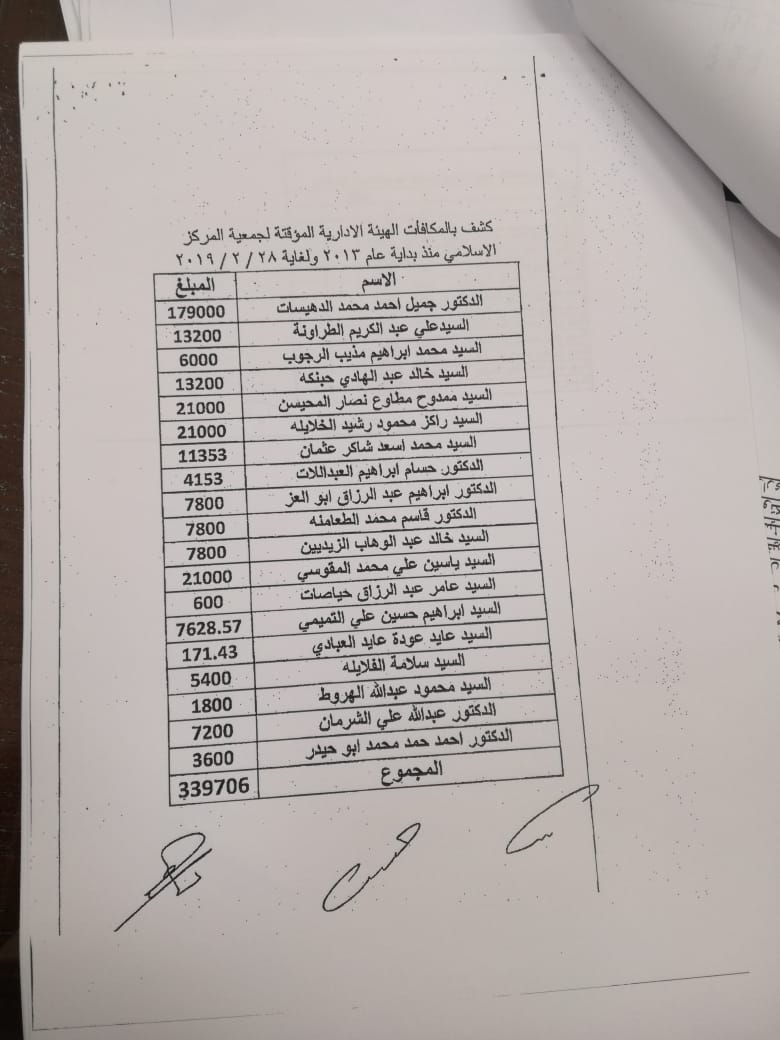 كشف بالمكافأت الهيئة الادارية المؤقتة لجمعية المركز
الاسلامي منذ بداية عام ٢٠١٣ ولغاية ٢٨ / ٢ / ٢٠١٩
الاسم المبلغ
الدكتور جميل احمد محمد الدهيسات 179000
السيدعلي عبد الكريم الطراونة 13200
السيد محمد ابراهيم مذيب الرجوب 6000
السيد خالد عبد الهادي حبنكه 13200
السيد ممدوح مطاوع نصار المحيسن 21000
السيد راكز محمود رشيد الخلايله 21000
السيد محمد اسعد شاكر عثمان 11353
الدكتور حسام ابراهيم العبداللات 4153
الدكتور ابراهيم عبد الرزاق ابو العز 7800
الدكتور قاسم محمد الطعامنه 7800
السيد خالد عبد الوهاب الزيديين 7800
السيد ياسين علي محمد المقوسي 21000
السيد عامر عبد الرزاق حياصات 600
السيد ابراهيم حسين علي التميمي 7628.57
السيد عايد عودة عايد العبادي 171.43
السيد سلامة الفلايله 5400
السيد محمود عبدالله الهروط 1800
الدكتور عبدالله علي الشرمان 7200
الدكتور احمد حمد محمد ابو حيدر 3600
المجموع 339706